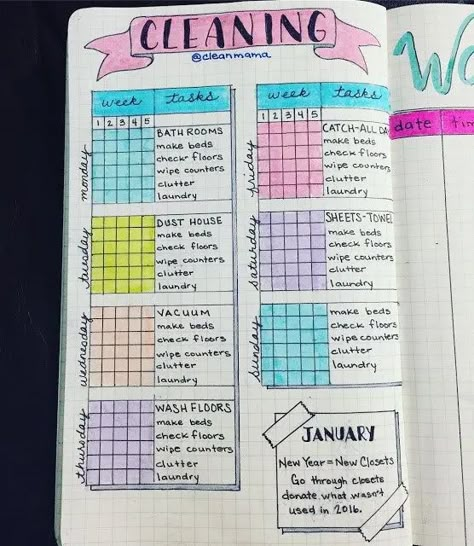 CLEANING
@cleanmama
week tasks
1 2 3 4 5
monday
BATHROOMS
make beds
check floors
wipe counters
clutter
laundry
tuesday
DUST HOUSE
make beds
check floors
wipe counters
clutter
laundry
wednesday
VACUUM
make beds
check floors
wipe counters
clutter
laundry
thursday
WASH FLOORS
make beds
check floors
wipe counters
clutter
laundry
week tasks
1 2 3 4 5
friday
CATCH-ALL DA
make beds
check floors
wipe counters
clutter
laundry
saturday
SHEETS-TOWEL
make beds
check floors
wipe counters
clutter
laundry
sunday
make beds
check floors
wipe counters
clutter
laundry
JANUARY
New Year=New Closets
Go through closets
donate what wasn't
used in 2016.
Wo
date tim